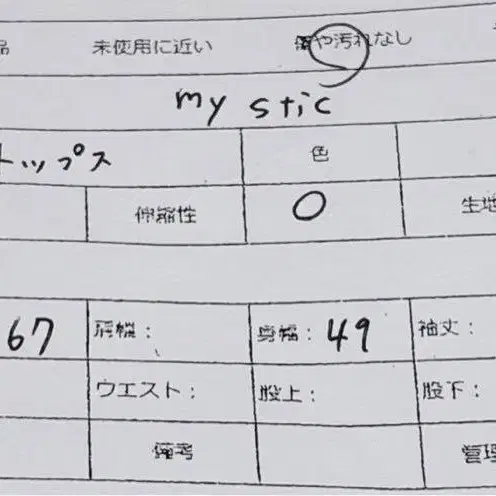 品 未使用に近い 傷や汚れなし
my stic
トップス 色
伸縮性 ○ 生地
67 肩幅： 身幅：49 袖丈：
ウエスト： 股上： 股下：
備考 管理